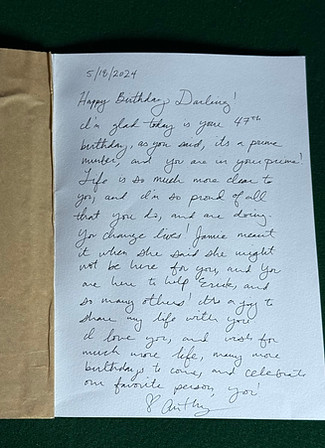 5/18/2024
Happy Birthday Darling!
I'm glad today is your 47th
birthday, as you said, it's a prime
number, and you are in your prime!
Life is so much more clear to
you, and I'm so proud of all
that you do, and are doing.
You change lives! Jamie meant
it when she said she might
not be here for you, and you
are here to help Erick, and
so many others! It's a joy to
share my life with you!
I love you, and wish for
much more life, many more
birthdays to come, and celebrate
our favorite person, you!
♡ Anthy